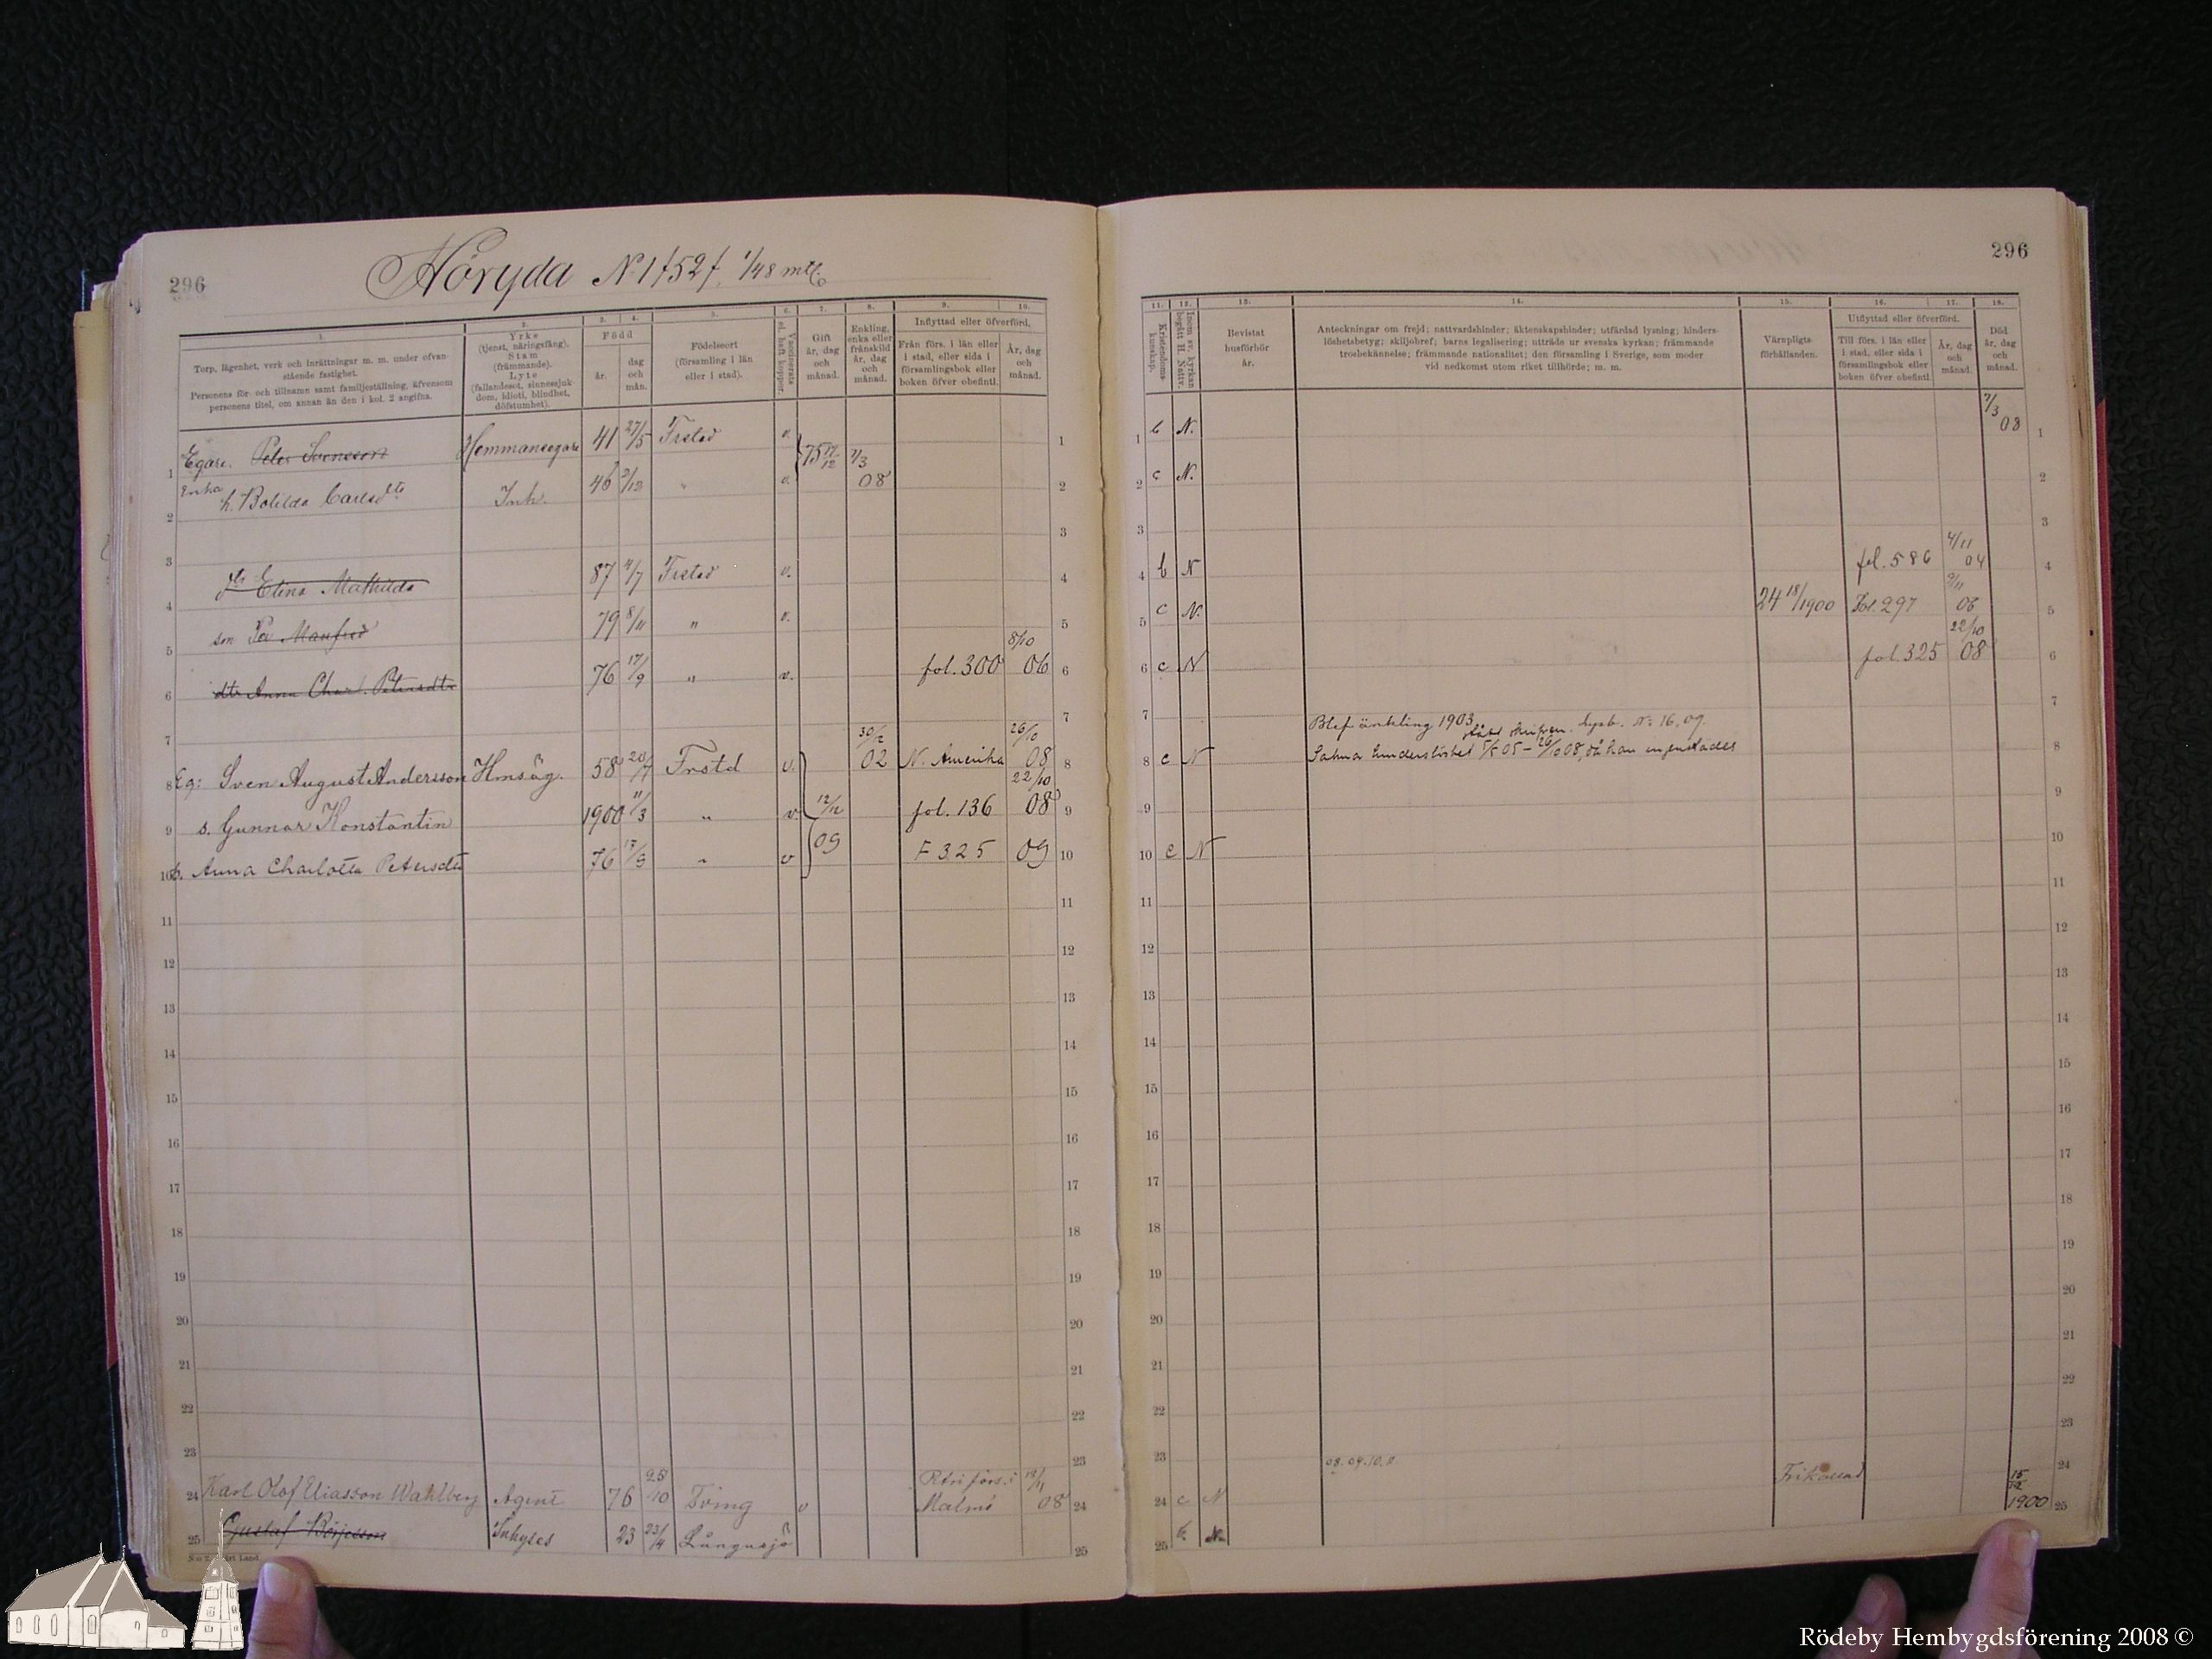 296
Höryda № 1 f52f, 1/48 mtl.
1. 2. 3. 4. 5. 6. 7. 8. 9. 10.
Torp, lägenhet, verk och inrättningar m. m. under ofvanstående fastighet.
Personens för- och tillnamn samt familjeställning, äfvensom personens titel, om annan än den i kol. 2 angifna.
Yrke (tjenst, näringsfång). Stam (främmande). Lyte (fallandesot, sinnessjukdom, idioti, blindhet, döfstumhet).
Född
år. dag och mån.
Födelseort (församling i län eller i stad).
Vaccinerats el. haft koppor.
Gift år, dag och månad.
Enkling, enka eller frånskild år, dag och månad.
Inflyttad eller öfverförd.
Från förs. i län eller i stad, eller sida i församlingsbok eller boken öfver obefintl.
År, dag och månad.
1 Egare. Peter Svensson Hemmansegare 41 27/5 Frstad v. 75 27/12 7/3 08 1
2 Enka h. Bolilda Carlsdtr Inh. 46 2/12 " v. 2
3 3
4 dtr Elina Mathilda 87 4/7 Frstad v. 4
5 son Per Manfred 79 8/11 " v. 5
6 dtr Anna Charl. Petersdtr 76 17/9 " v. fol. 300 8/10 06 6
7 7
8 Eg: Sven August Andersson Hmsäg. 58 20/7 Frstd v. 30/12 02 N. Amerika 26/10 08 8
9 s. Gunnar Konstantin 1900 11/3 " v. 12/12 fol. 136 22/10 08 9
10 h. Anna Charlotta Petersdtr 76 17/9 " v 09 F 325 09 10
11 11
12 12
13 13
14 14
15 15
16 16
17 17
18 18
19 19
20 20
21 21
22 22
23 23
24 Karl Olof Eliasson Wahlberg Agent 76 25/10 Tving v Petri förs. i Malmö 13/11 08 24
25 Gustaf Börjesson Inhyses 23 23/4 Långasjö 25
296
11. 12. 13. 14. 15. 16. 17. 18.
Kristendomskunskap.
Inom sv. kyrkan begått H. Nattv.
Bevistat husförhör år.
Anteckningar om frejd; nattvardshinder; äktenskapshinder; utfärdad lysning; hinderslöshetsbetyg; skiljobref; barns legalisering; utträde ur svenska kyrkan; främmande trosbekännelse; främmande nationalitet; den församling i Sverige, som moder vid nedkomst utom riket tillhörde; m. m.
Värnpligtsförhållanden.
Utflyttad eller öfverförd.
Till förs. i län eller i stad, eller sida i församlingsbok eller boken öfver obefintl.
År, dag och månad.
Död år, dag och månad.
1 b N. 7/3 08 1
2 c N. 2
3 3
4 b N fol. 586 4/11 04 4
5 c N. 24 18/1900 Fol. 297 06 5
6 c N fol. 325 22/10 08 6
7 Blef änkling 1903. Lysb. № 16, 09. 7
8 c N Saknar hinderslöshet 05 – 26/10 08, då han 8
9 9
10 c N 10
11 11
12 12
13 13
14 14
15 15
16 16
17 17
18 18
19 19
20 20
21 21
22 22
23 23
24 c N 08. 09. 10. Frikallad 24
25 N. 15/12 1900 25
Rödeby Hembygdsförening 2008 ©